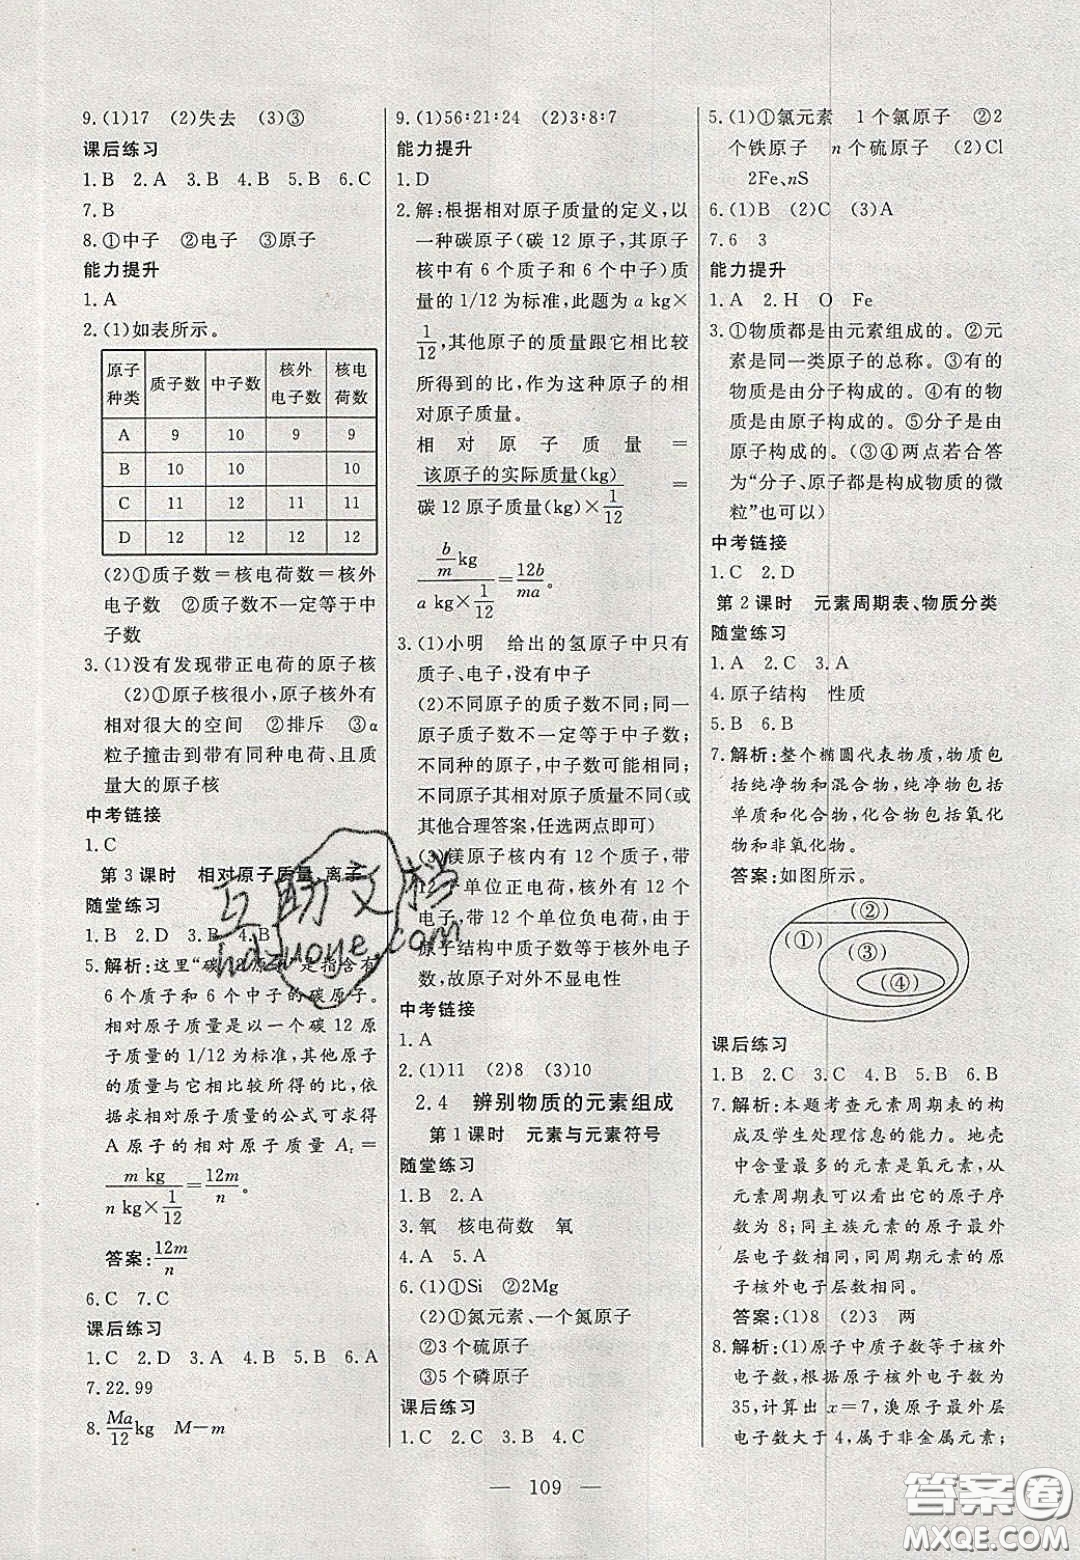 9.(1)17 (2)失去 (3)③
课后练习
1.B 2.A 3.B 4.B 5.B 6.C
7.B
8.①中子 ②电子 ③原子
能力提升
1.A
2.(1)如表所示。
原子种类 质子数 中子数 核外电子数 核电荷数
A 9 10 9 9
B 10 10 10
C 11 12 11 11
D 12 12 12 12
(2)①质子数=核电荷数=核外
电子数 ②质子数不一定等于中
子数
3.(1)没有发现带正电荷的原子核
(2)①原子核很小,原子核外有
相对很大的空间 ②排斥 ③α
粒子撞击到带有同种电荷、且质
量大的原子核
中考链接
1.C
第3课时 相对原子质量 离子
随堂练习
1.B 2.D 3.B 4.B
5.解析:这里“碳12原子”是指含有
6个质子和6个中子的碳原子。
相对原子质量是以一个碳12原
子质量的1/12为标准,其他原子
的质量与它相比较所得的比值。
依据求相对原子质量的公式可求得
A原子的相对原子质量 Ar =
m kg / (n kg×1/12) = 12m/n。
答案:12m/n
6.C 7.C
课后练习
1.C 2.D 3.D 4.B 5.B 6.A
7.22.99
8.Ma/12 kg M-m
9.(1)56:21:24 (2)3:8:7
能力提升
1.D
2.解:根据相对原子质量的定义,以
一种碳原子(碳12原子,其原子
核中有6个质子和6个中子)质
量的1/12为标准,此题为a kg×
1/12,其他原子的质量跟它相比较
所得到的比,作为这种原子的相
对原子质量。
相对原子质量=
该原子的实际质量(kg) / (碳12原子质量(kg)×1/12) =
(b/m kg) / (a kg×1/12) = 12b/ma。
3.(1)小明 给出的氢原子中只有
质子、电子,没有中子
(2)不同原子的质子数不同;同一
原子质子数不一定等于中子数;
不同种的原子,中子数可能相同;
不同种原子相对原子质量不同(或
其他合理答案,任选两点即可)
(3)镁原子核内有12个质子,带
12个单位正电荷,核外有12个
电子,带12个单位负电荷,由于
原子结构中质子数等于核外电子
数,故原子对外不显电性
中考链接
1.A
2.(1)11 (2)8 (3)10
2.4 辨别物质的元素组成
第1课时 元素与元素符号
随堂练习
1.B 2.A
3.氧 核电荷数 氧
4.A 5.A
6.(1)①Si ②2Mg
(2)①氮元素、一个氮原子
②3个硫原子
③5个磷原子
课后练习
1.C 2.C 3.B 4.C
5.(1)①氯元素 1个氯原子 ②2
个铁原子 n个硫原子 (2)Cl
2Fe、nS
6.(1)B (2)C (3)A
7.6 3
能力提升
1.A 2.H O Fe
3.①物质都是由元素组成的。②元
素是同一类原子的总称。③有的
物质是由分子构成的。④有的物
质是由原子构成的。⑤分子是由
原子构成的。(③④两点若合答
为“分子、原子都是构成物质的微
粒”也可以)
中考链接
1.C 2.D
第2课时 元素周期表、物质分类
随堂练习
1.A 2.C 3.A
4.原子结构 性质
5.B 6.B
7.解析:整个椭圆代表物质,物质包
括纯净物和混合物,纯净物包括
单质和化合物,化合物包括氧化
物和非氧化物。
答案:如图所示。
(②)
(①)
(③)
(④)
课后练习
1.B 2.B 3.C 4.B 5.B 6.B
7.解析:本题考查元素周期表的构
成及学生处理信息的能力。地壳
中含量最多的元素是氧元素,从
元素周期表可以看出它的原子序
数为8;同主族元素的原子最外
层电子数相同,同周期元素的原
子核外电子层数相同。
答案:(1)8 (2)3 两
8.解析:(1)原子中质子数等于核外
电子数,根据原子核外电子数为
35,计算出x=7,溴原子最外层
电子数大于4,属于非金属元素;
109
互助文档
hdzuoye.com
答案圈
MXQE.COM